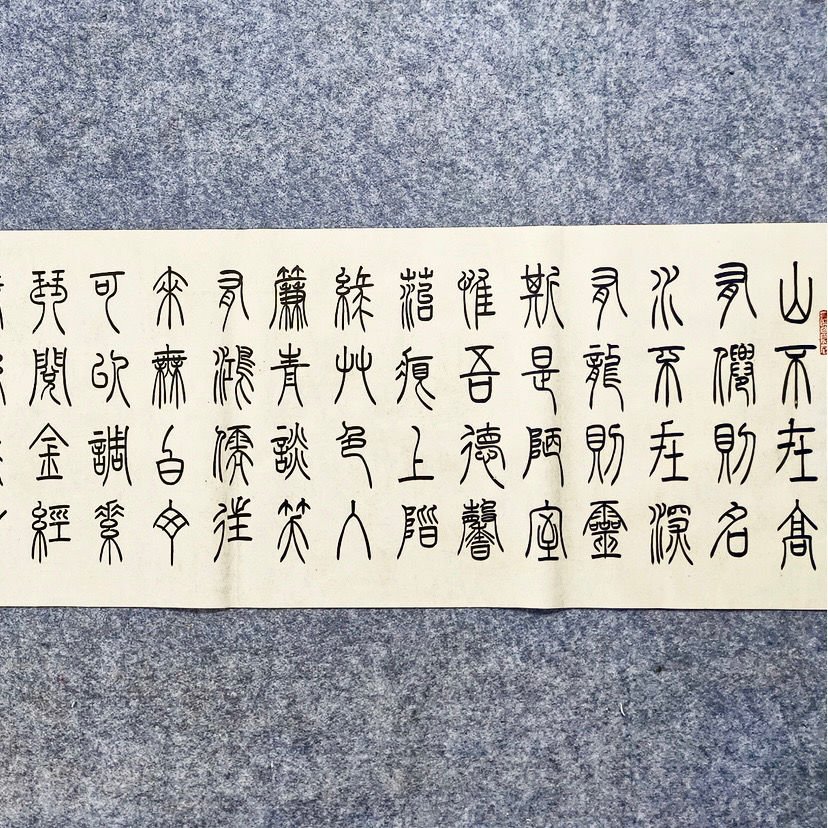 山不在高
有僊則名
水不在深
有龍則靈
斯是陋室
惟吾德馨
菭痕上階
綠艸色入
簾青談笑
有鴻儒往
來無白丁
可以調素
琴閱金經